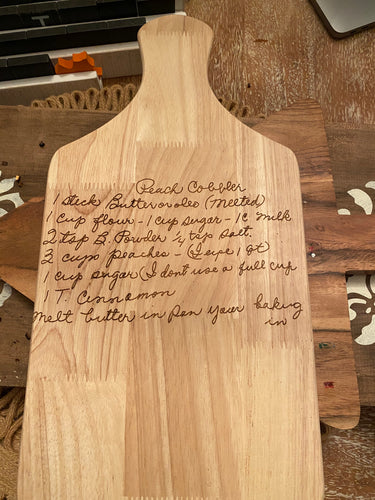 Peach Cobbler
1 stick Butter or oleo (Melted)
1 cup flour - 1 cup sugar - 1c milk
2 tsp B. Powder ½ tsp salt.
2 cups peaches - (I use 1 qt)
1 cup sugar (I dont use a full cup
1 T. Cinnamon
Melt butter in pan your baking
in